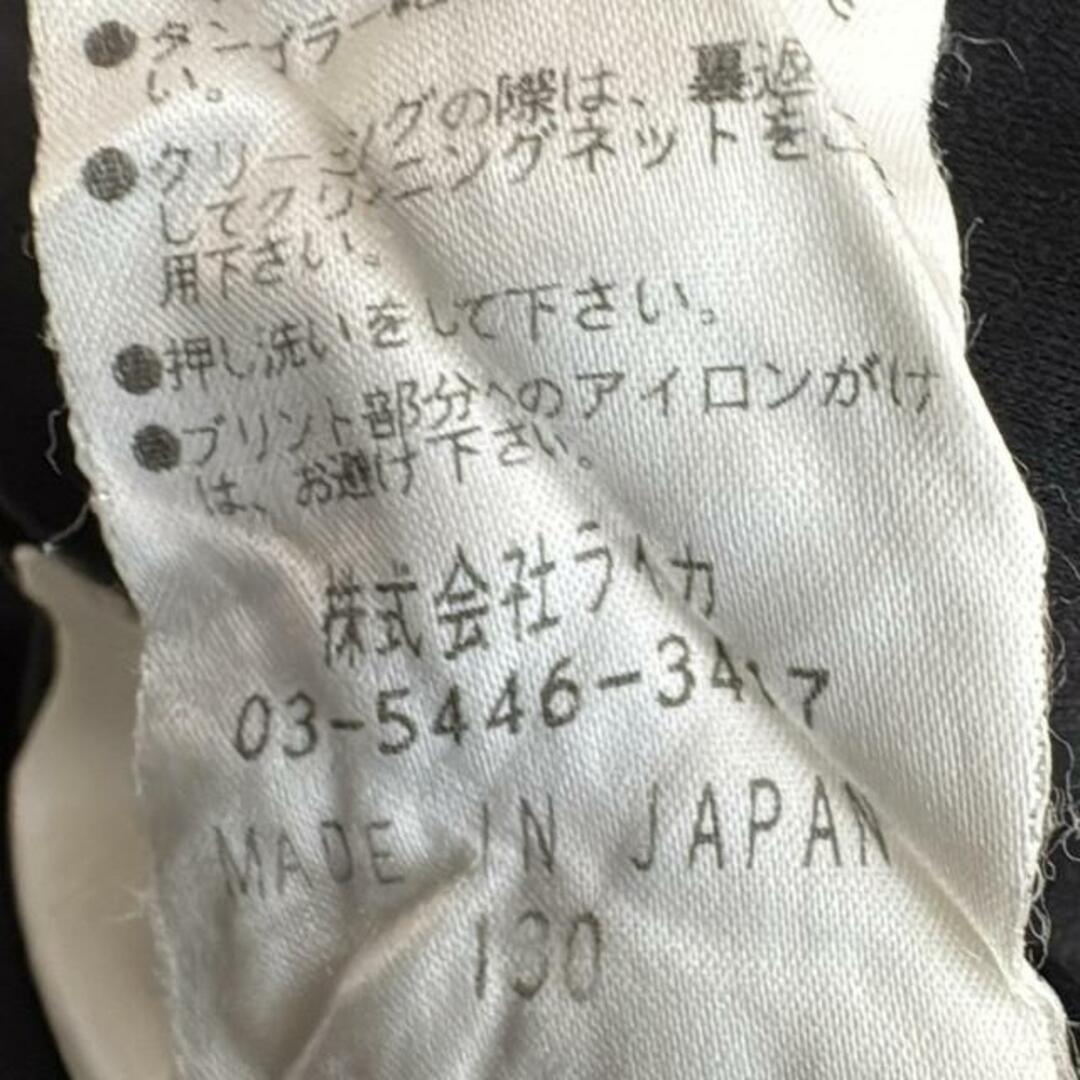 タンイラー
い。
クリーニングの際は、裏返
してクリーニングネットをご
用下さい。
押し洗いをして下さい。
プリント部分へのアイロンがけ
は、お避け下さい。
株式会社
03-5446-34
MADE IN JAPAN
130